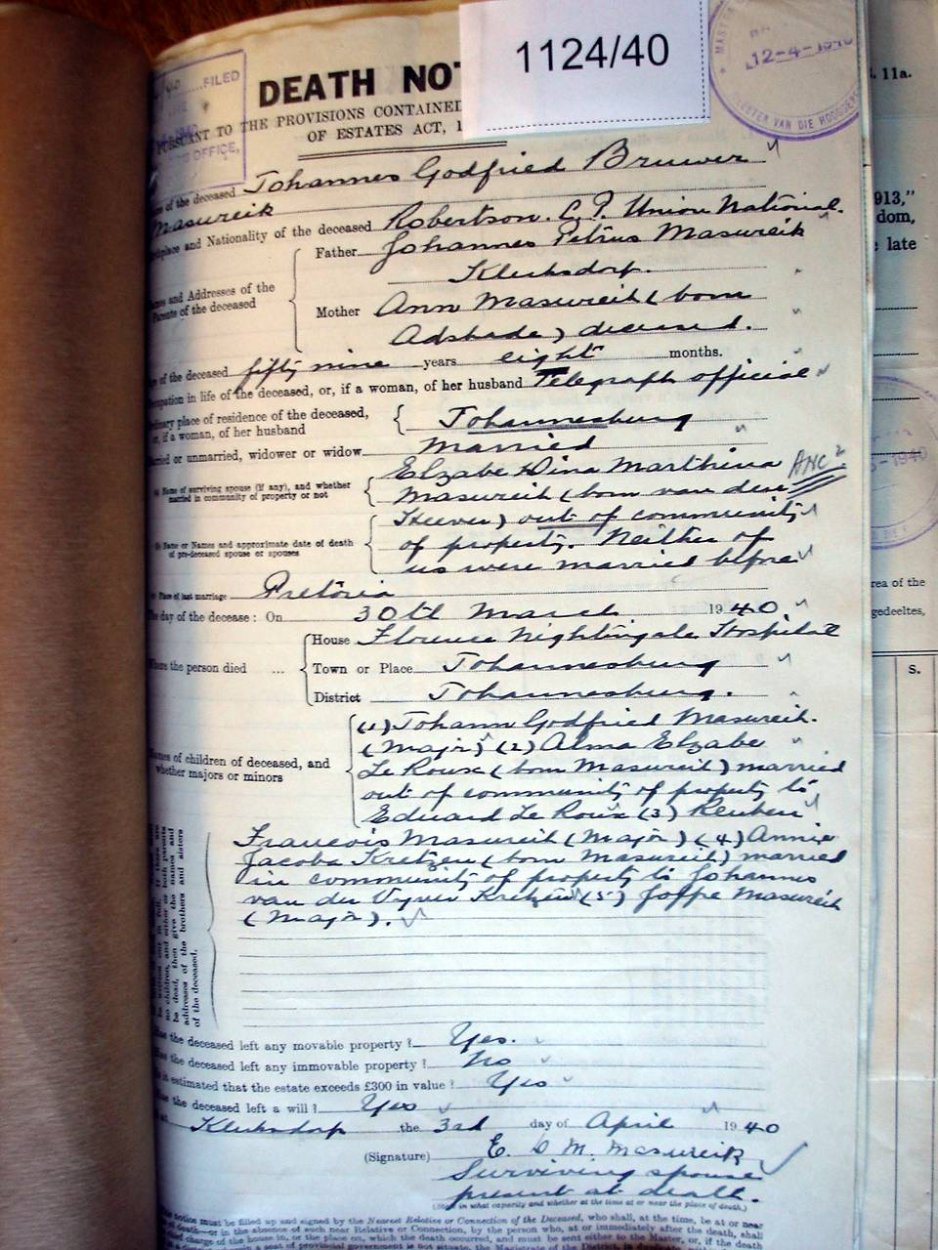 1124/40
FILED
OFFICE,
12-4-1940
VAN DIE
11a.
DEATH NOT
PURSUANT TO THE PROVISIONS CONTAINED
OF ESTATES ACT, 1
913,"
dom,
late
of the deceased Johannes Godfried Bruwer
Masureik
and Nationality of the deceased Robertson. C.P. Union National.
Names and Addresses of the Parents of the deceased
Father Johannes Petrus Masureik
Klerksdorp.
Mother Ann Masureik (born
Adshade) deceased.
of the deceased fifty nine years eight months.
Occupation in life of the deceased, or, if a woman, of her husband Telegraph official
Ordinary place of residence of the deceased, or, if a woman, of her husband
Johannesburg
Married or unmarried, widower or widow Married
Name of surviving spouse (if any), and whether married in community of property or not
Elzabe Dina Marthina ANC?
Masureik (born van der
Name or Names and approximate date of death of pre-deceased spouse or spouses
Heever) out of community
of property. Neither of
us were married before
Place of last marriage Pretoria
The day of the decease: On 30th March 1940
Where the person died ...
House Florence Nightingale Hospital
Town or Place Johannesburg
District Johannesburg.
-1940
rea of the
gedeeltes,
S.
Names of children of deceased, and whether majors or minors
(1) Johann Godfried Masureik.
(Major) (2) Alma Elzabe
Le Roux (born Masureik) married
out of community of property to
Eduard Le Roux (3) Reuben
Francois Masureik (Major) (4) Annie
Jacoba Kretzen (born Masureik) married
in community of property to Johannes
van der Vyver Kretzen (5) Joffre Masureik
(Major).
be dead, then give the names and
addresses of the brothers and sisters
of the deceased.
the deceased left any movable property? Yes.
the deceased left any immovable property? No
estimated that the estate exceeds £300 in value? Yes
the deceased left a will? Yes
Klerksdorp the 3rd day of April 1940
(Signature) E. D. M. Masureik
Surviving spouse
present at death.
(State in what capacity and whether at the time at or near the place of death.)
notice must be filled up and signed by the Nearest Relative or Connection of the Deceased, who shall, at the time, be at or near